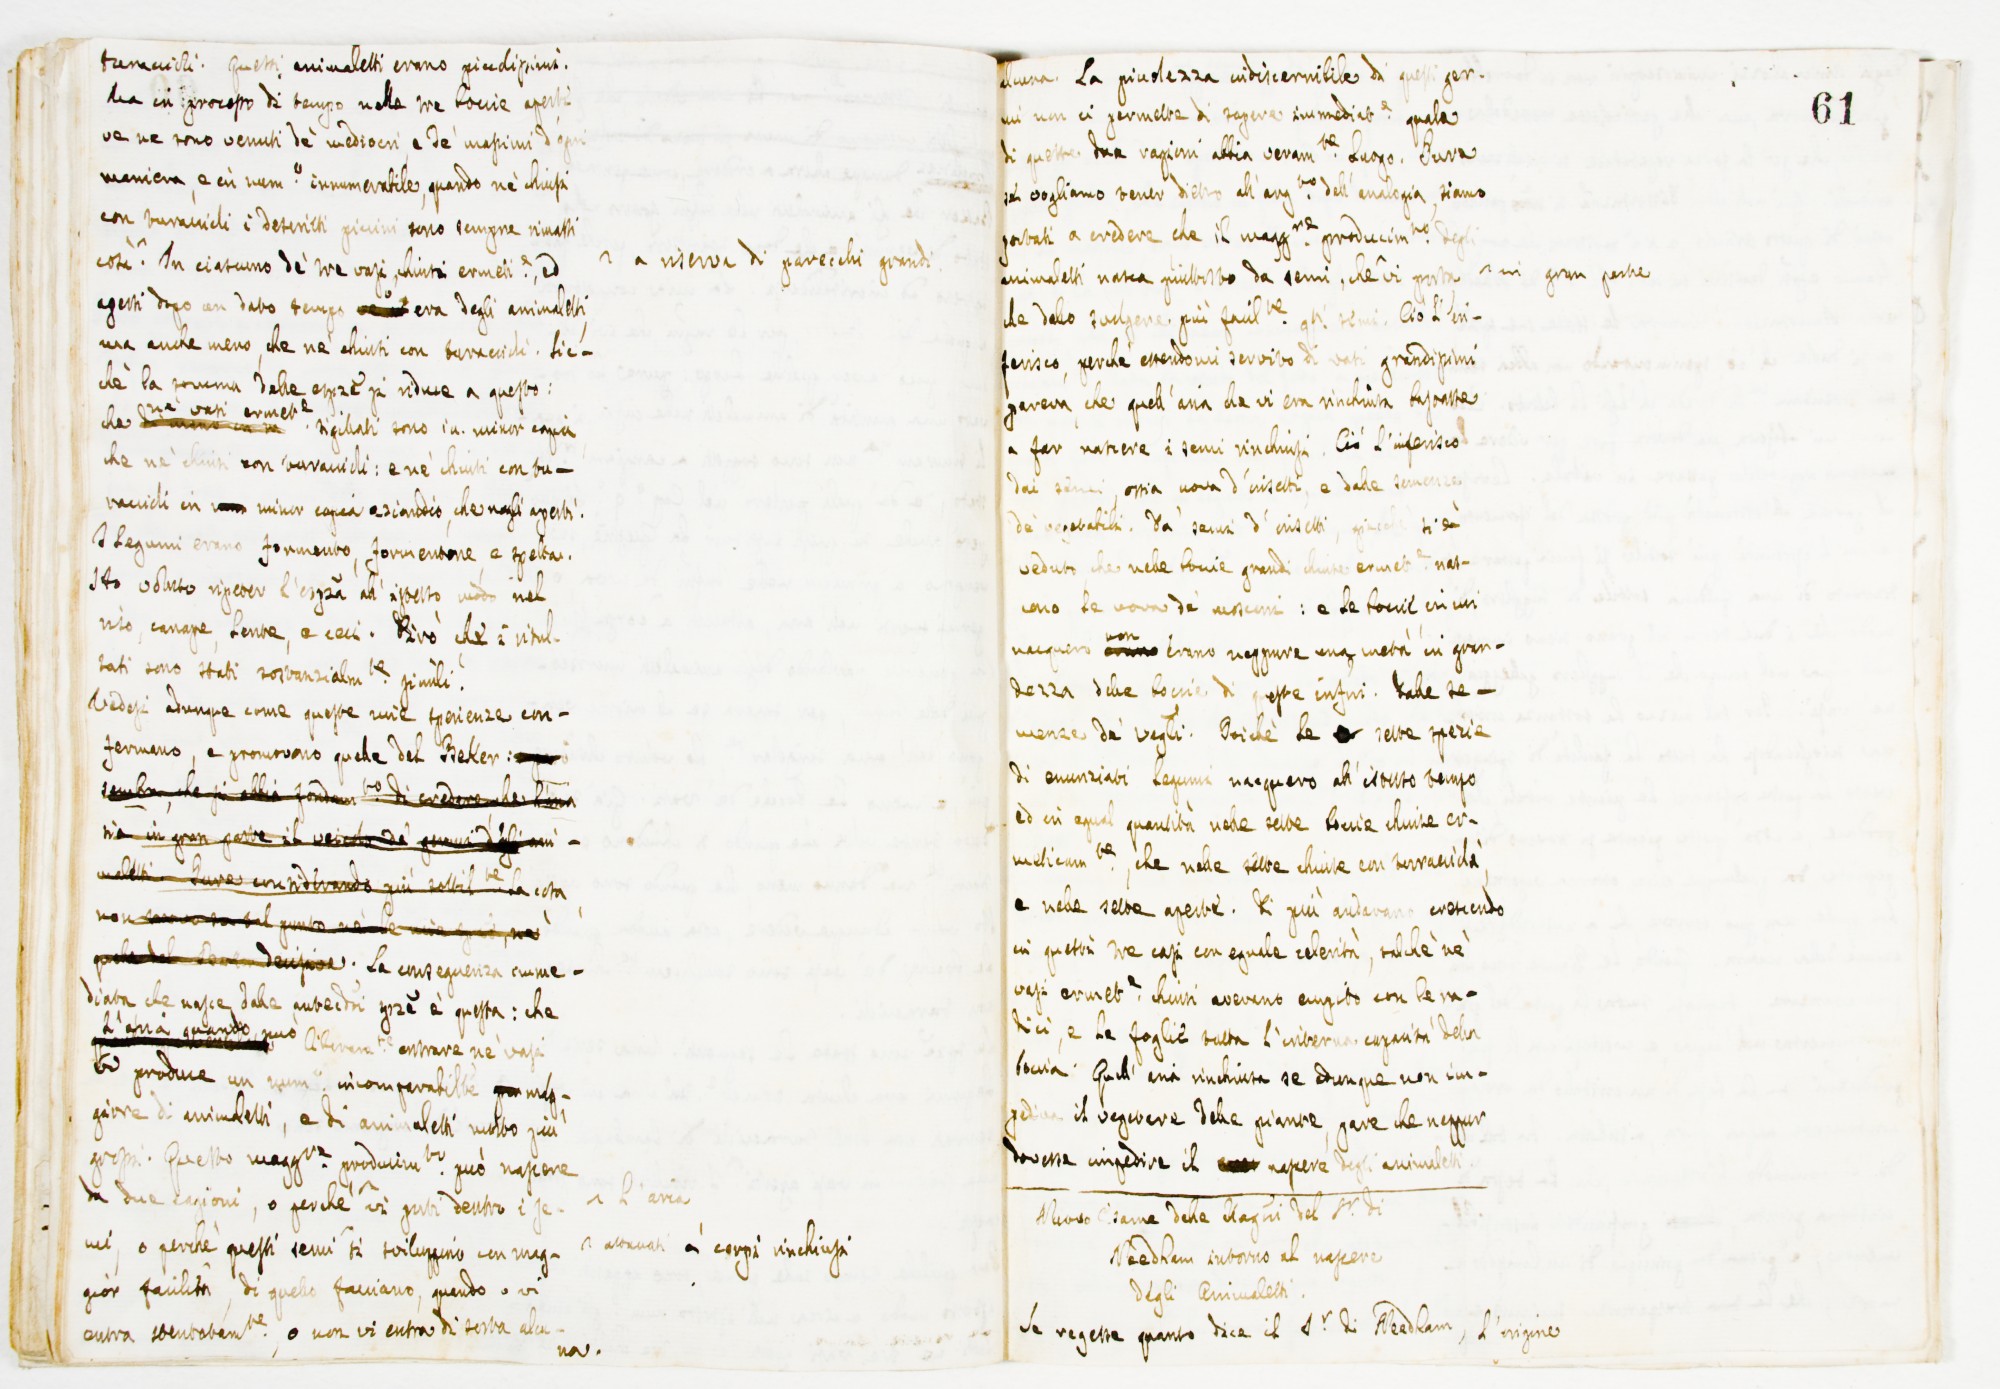 turaccioli. Questi animaletti erano picciolissimi.
Ma in processo di tempo nelle tre boccie aperte
ve ne sono venuti de' mediocri, e de' massimi d'ogni
maniera, e in num.o innumerabile, quando ne' chiusi
con turaccioli i descritti piccini sono sempre rimasti
così ^. In ciascuno de' tre vasi, chiusi ermeti.e, ed
^ a riserva di parecchi grandi.
aperti dopo un dato tempo era degli animaletti,
ma anche meno, che ne' chiusi con turaccioli. Sic-
chè la somma delle esp.ze si riduce a questo:
che ne' vasi ermet.e sigillati sono in minor copia
che ne' chiusi con turaccioli: e ne' chiusi con tu-
raccioli in minor copia eziandio, che negli aperti.
I Legumi erano formento, formentone, e spelta.
Ho voluto ripeter l'espza all'istesso modo nel
riso, canape, lente, e ceci. Dirò che i risul-
tati sono stati sostanzialm.te simili.
Vedesi adunque come queste mie sperienze con-
fermano, e promovono quelle del Beker:
sembra, che si abbia fondam.to di credere che l'aria
sia in gran parte il veicolo de' germi degli ani-
maletti. Pure considerando più sottil.te la cosa
non sono tal punto nè le mie, nè
quelle del decisive. La conseguenza imme-
diata che nasce dalle antecedti spze è questa: che
l'aria quando può liberam.te entrare ne' vasi
vi produce un num.o incomparabilte mag-
giore di animaletti, e di animaletti molto più
grossi. Questo magg.re producim.to può nascere
da due cagioni, o perchè ^ vi porti dentro i se-
^ l'aria
mi, o perchè questi semi ^ si sviluppino con mag-
^ attaccati a' corpi rinchiusi
gior facilità, di quello facciano, quando o vi
entra stentatam.te, o non vi entra di sorta alcu-
na.
61
alcuna. La picolezza indiscernibile di questi ger-
mi non ci permette di sapere immediat.e quale
di queste due ragioni abbia veram.te luogo. Pure
se vogliamo tener dietro all'arg.to dell'analogia, siamo
portati a credere che il magg.re producim.to degli
animaletti nasca piuttosto da semi, che ^ vi porta
^ in gran parte
che dallo svolgere più facil.te gli semi. Ciò l'in-
ferisco, perchè essendomi servito di vasi grandissimi
pareva, che quell'aria che vi era rinchiusa bastasse
a far nascere i semi rinchiusi. Ciò l'inferisco
dai semi, ossia uova d'insetti, e dalle semenze
de' vegetabili. Da' semi d'insetti, giacchè si è
veduto, che nelle boccie grandi chiuse ermet.e nas-
cono le uova de' mosconi: e le boccie in cui
nacquero non erano neppure una metà in gran-
dezza delle boccie di queste infusi. Dalle se-
menze de' vegli. Poichè le sette spezie
di enunziati legumi nacquero all'istesso tempo
ed in egual quantità nelle sette boccie chiuse er-
meticam.te, che nelle sette chiuse con turaccioli,
e nelle sette aperte. Di più andavano crescendo
in questi tre casi con eguale celerità, talchè ne'
vasi ermet.e chiusi avevano empito con le ra-
dici, e le foglie tutta l'interna capacità della
boccia. Quell'aria rinchiusa se adunque non im-
pediva il vegetare delle piante, pare che neppur
dovesse impedire il nascere degli animaletti.
Nuovo Esame delle Ragni del S.r di
Needham intorno al nascere
degli Animaletti.
Se regesse quanto dice il S.r di Needham, l'origine